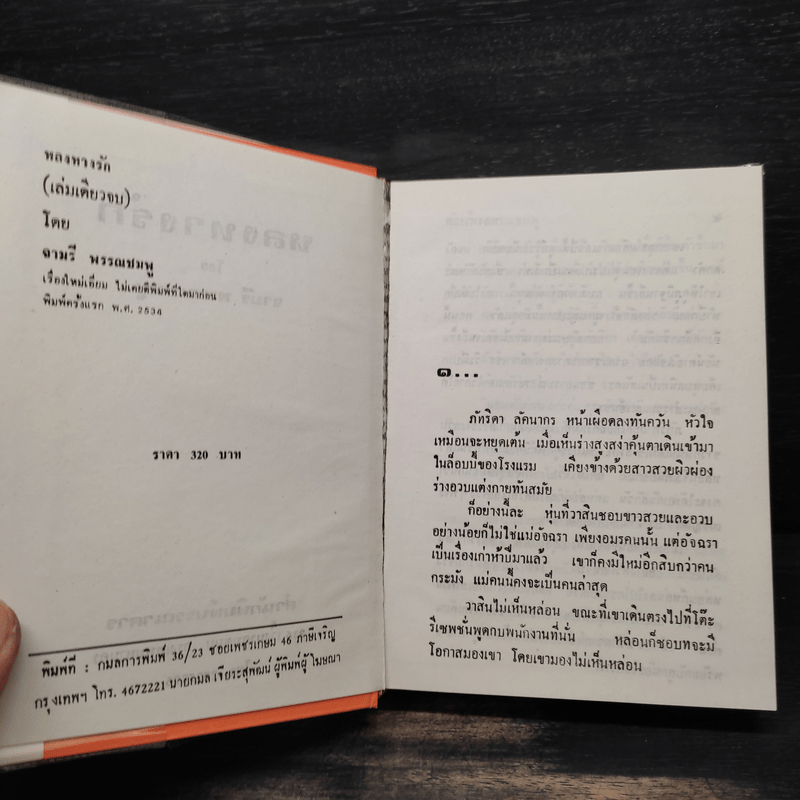 หลงทางรัก
(เล่มเดียวจบ)
โดย
จามรี พรรณชมพู
เรื่องใหม่เอี่ยม ไม่เคยตีพิมพ์ที่ใดมาก่อน
พิมพ์ครั้งแรก พ.ศ. 2534
ราคา 320 บาท
พิมพ์ที่ : กมลการพิมพ์ 36/23 ซอยเพชรเกษม 46 ภาษีเจริญ
กรุงเทพฯ โทร. 4672221 นายกมล เจียระสุพัฒน์ ผู้พิมพ์ผู้โฆษณา
๑...
ภัทริดา ลัคนากร หน้าเผือดลงทันควัน หัวใจ
เหมือนจะหยุดเต้น เมื่อเห็นร่างสูงสง่าคุ้นตาเดินเข้ามา
ในล็อบบี้ของโรงแรม เคียงข้างด้วยสาวสวยผิวผ่อง
ร่างอวบแต่งกายทันสมัย
ก็อย่างนี้ละ หุ่นที่วาสินชอบขาวสวยและอวบ
อย่างน้อยก็ไม่ใช่แม่อัจฉรา เพียงอมรคนนั้น แต่อัจฉรา
เป็นเรื่องเก่าห้าปีมาแล้ว เขาก็คงมีใหม่อีกสิบกว่าคน
กระมัง แม่คนนี้คงจะเป็นคนล่าสุด
วาสินไม่เห็นหล่อน ขณะที่เขาเดินตรงไปที่โต๊ะ
รีเซพชั่นพูดกบพนักงานที่นั่น หล่อนก็ชอบที่จะมี
โอกาสมองเขา โดยเขามองไม่เห็นหล่อน